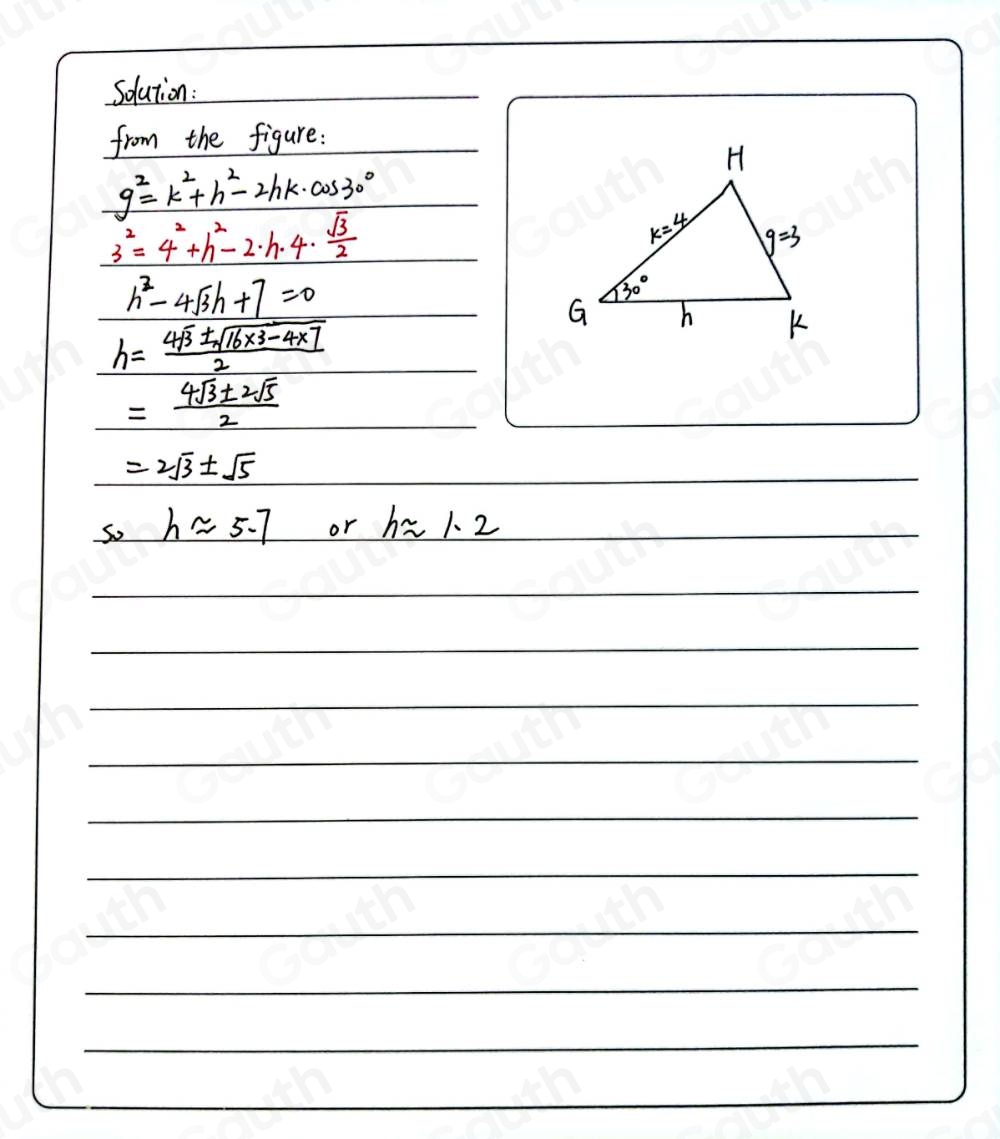 Solution:
from the figure:
g² = k² + h² - 2hk·cos30°
3² = 4² + h² - 2·h·4·√3/2
h² - 4√3h + 7 = 0
h = (4√3 ± √(16×3-4×7))/2
= (4√3 ± 2√5)/2
= 2√3 ± √5
so h ≈ 5.7 or h ≈ 1.2
H
k=4
g=3
30°
G
h
K
Gauth